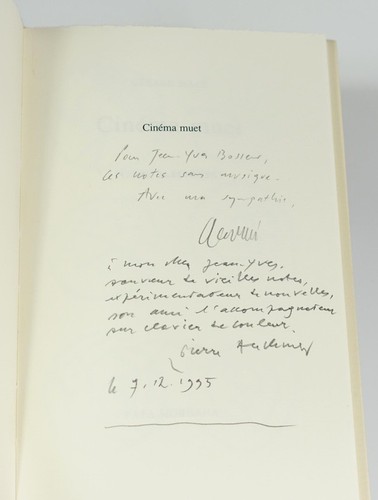 Cinéma muet
Pour Jean-Yves Bosseur,
ces notes sans musique.
Avec ma sympathie,
à mon cher Jean-Yves,
sauveur de vieilles notes,
expérimentateur de nouvelles,
son ami l'accompagnateur
sur clavier de couleur.
Pierre
le 7.12.1995